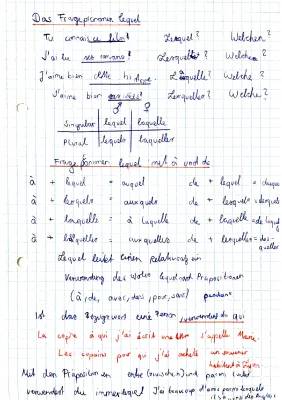 Das Fragepronomen lequel
Tu connais ce film? Lequel? Welchen?
J'ai lu ces romans! Lesquels? Welchen?
J'aime bien cette histoire. Laquelle? Welche?
J'aime bien Lesquelles? Welche?
♂ ♀
Singular lequel laquelle
Plural lequels lesquelles
Fragepronomen lequel mit à und de
à + lequel = auquel de + lequel = duquel
à + lesquels = auxquels de + lesquels = desquels
à + laquelle = à laquelle de + laquelle = de laquelle
à + lesquelles = auxquelles de + lesquelles = des-
quelles
Lequel leitet einen Relativsatz ein
Verwendung des Wortes lequel nach Präpositionen
(à, de, avec, dans, pour, sans) pendant
Ist das Bezugswort eine Person verwendet du qui
La copine à qui j'ai écrit une lettre s'appelle Marie.
Les copains pour qui j'ai acheté un souvenir
habitent à
Mit den Präpositionen entre (zwischen) und parmi (unter)
verwendest du immer lequel J'ai beaucoup d'amis parmi lesquels